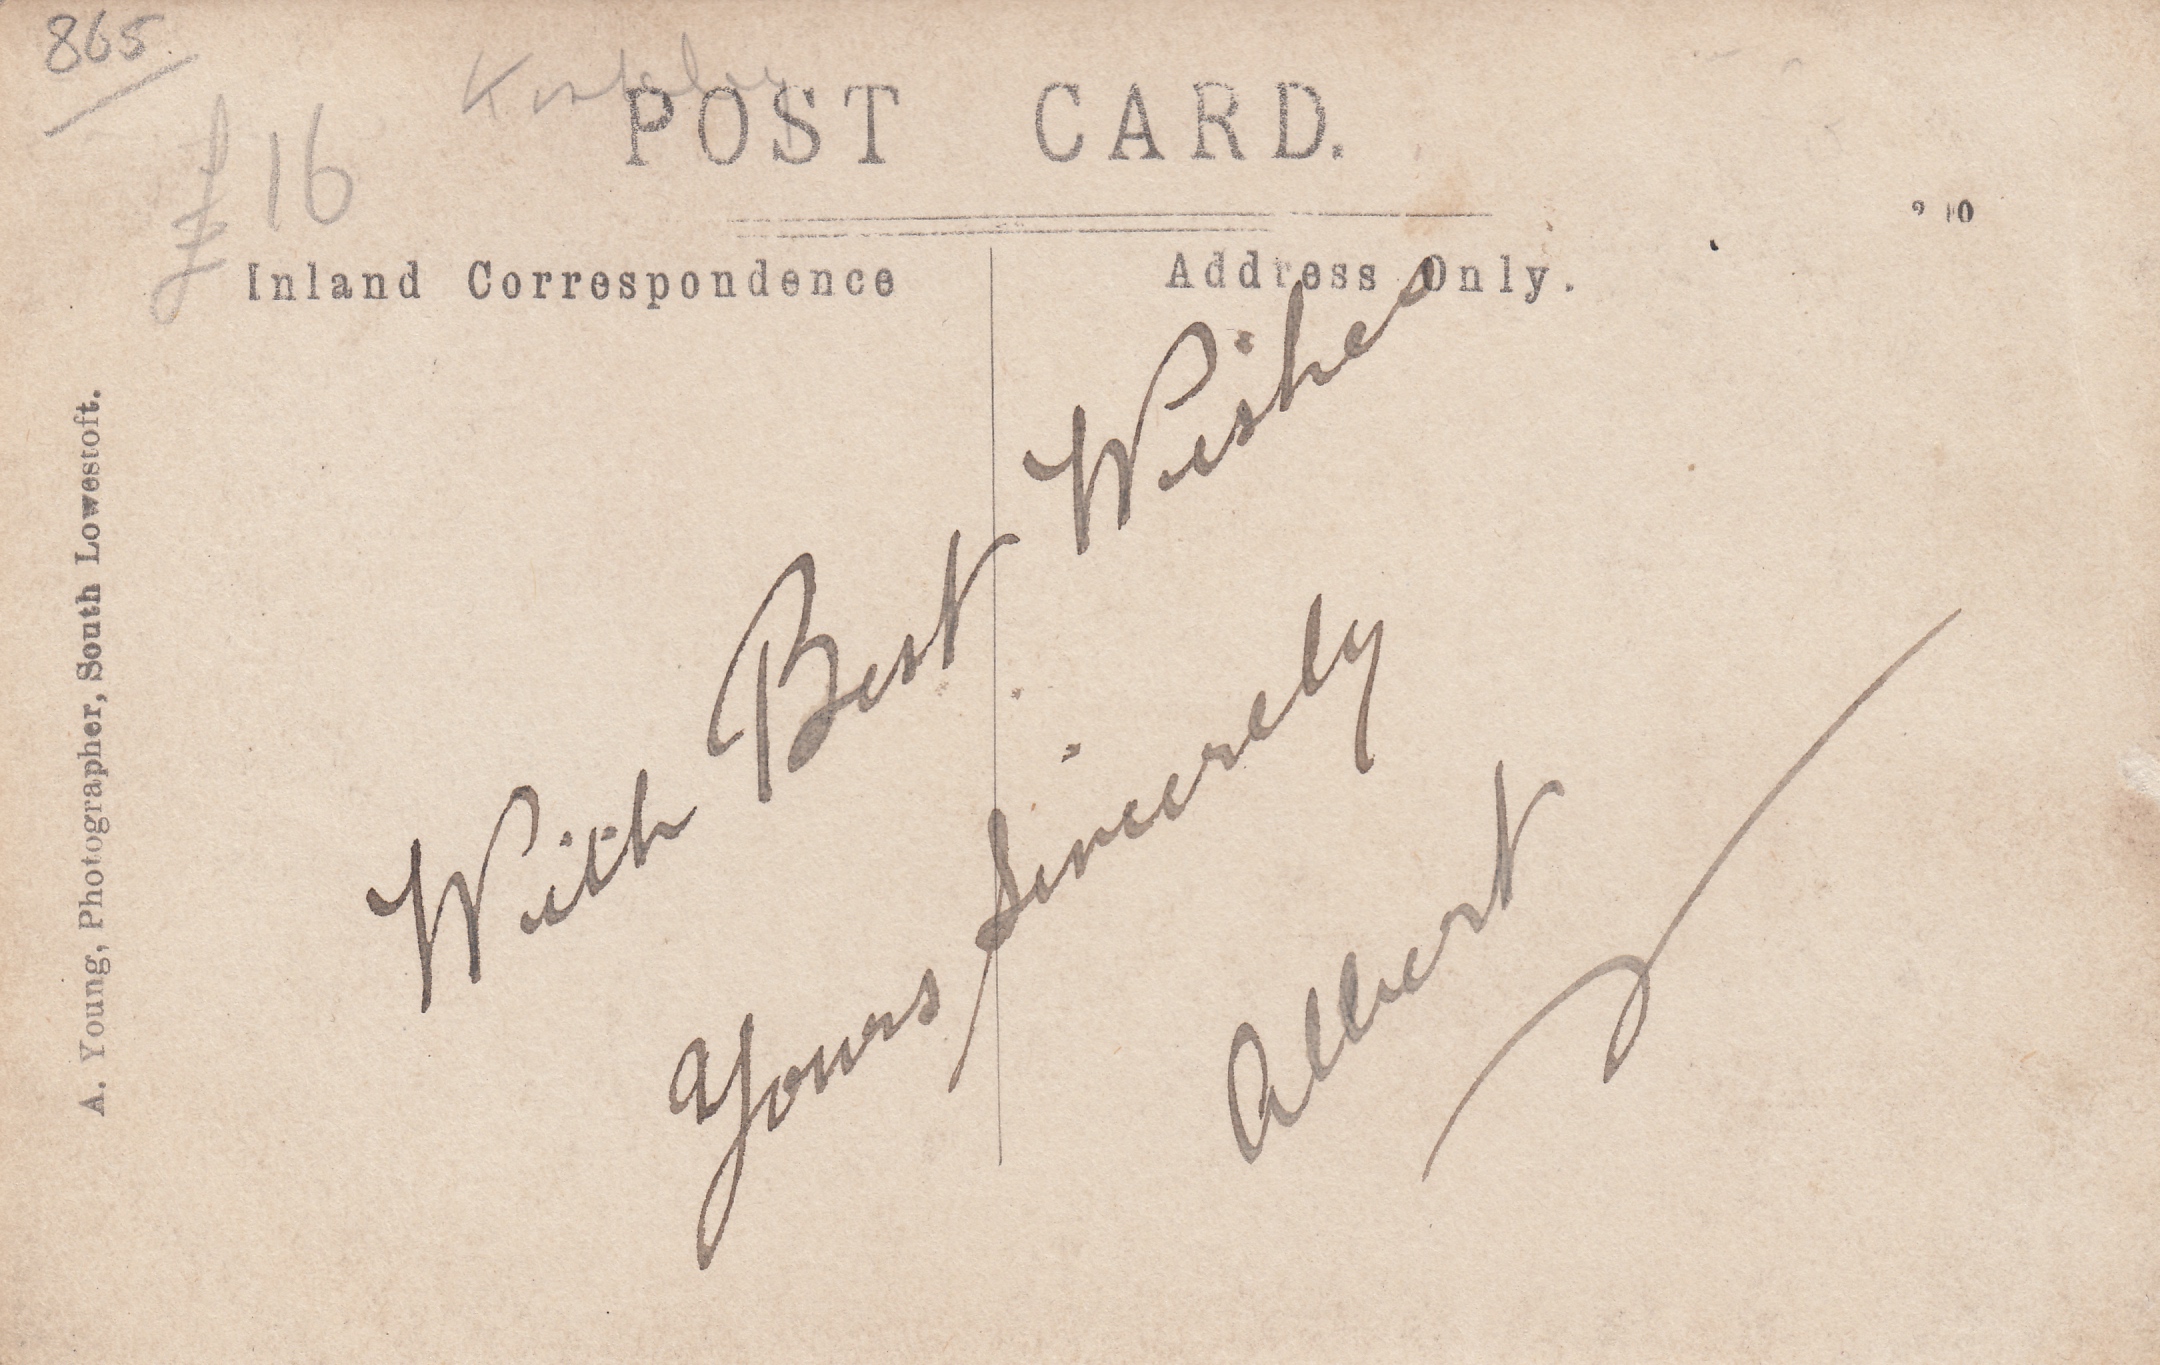 865
£16
POST CARD.
Inland Correspondence
Address Only.
A. Young, Photographer, South Lowestoft.
With Best Wishes
Yours Sincerely
Albert